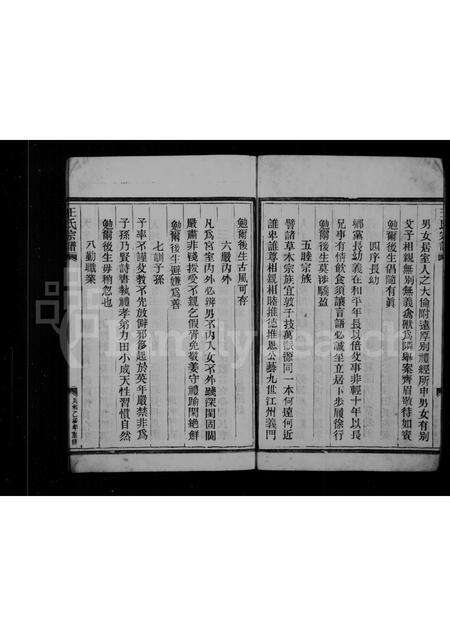 男女居室人之大倫附遠厚別禮經所申男女有別
父子相親無別無義禽獸為鄰舉案齊眉敬待如賓
勉爾後生倡隨有眞
四序長幼
鄉黨長幼義在和平年長以倍父事非輕十年以長
兄事有情飲食須讓言語必誠坐立起卜步履徐行
勉爾後生莫涉驕盈
五睦宗族
譬諸草木宗族宜敦千枝萬派源同一本何遠何近
誰卑誰尊相親相睦推德推恩公藝九世江州義門
勉爾後生古風可存
六嚴內外
凡為宮室內外必辨男不內入女不外踐深閨固闢
嚴肅非錢授受不親乞假胥免敬姜守禮踰閾絕鮮
勉爾後生避嫌為善
七訓子孫
子率不謹父教不先放僻邪侈起於英年嚴禁非為
子孫乃賢詩書執禮孝弟力田小成天性習慣自然
勉爾後生毋稍忽也
八勤職業
王氏宗譜